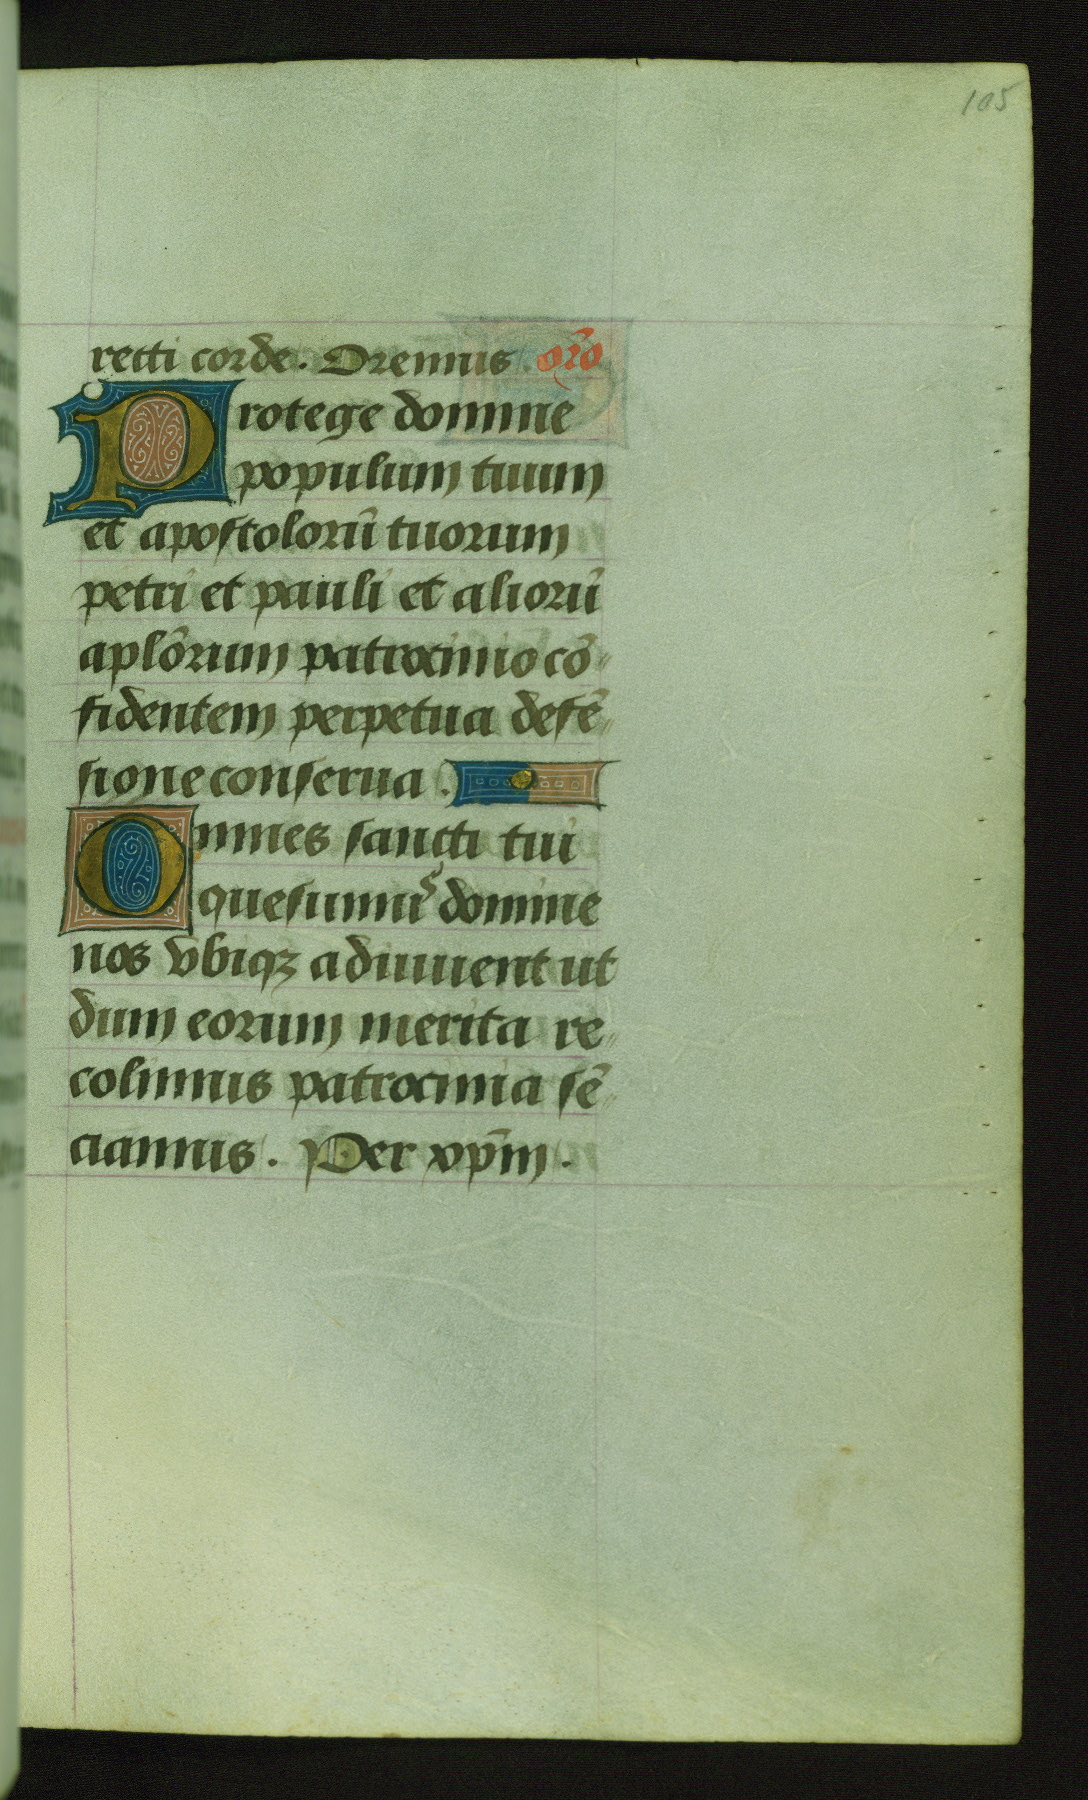 105
recti corde. Oremus. or̄o
Protege domine
populum tuum
et apostolorū tuorum
petri et pauli et aliorū
aplōrum patrocinio cō-
fidentem perpetua defē-
sione conserua.
Omnes sancti tui
quesumus domine
nos vbiqꝫ adiuuent ut
dum eorum merita re-
colimus patrocinia sē-
ciamus. Per xp̄m.